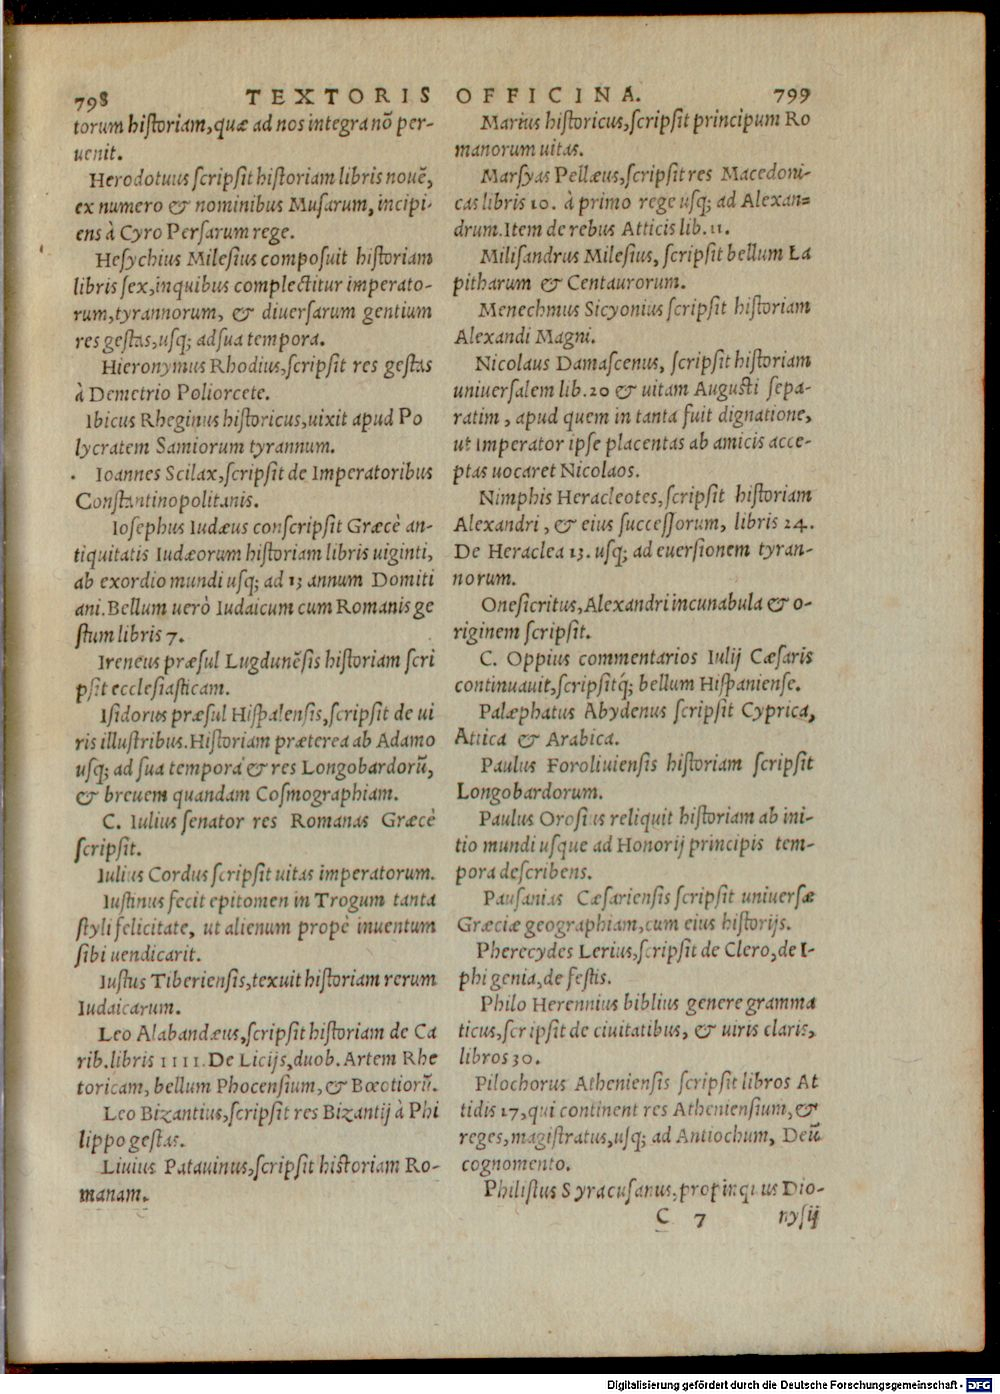 798 TEXTORIS OFFICINA. 799
torum hiſtoriam, quæ ad nos integra nõ per-
uenit.
Herodotuus ſcripſit hiſtoriam libris nouẽ,
ex numero & nominibus Muſarum, incipi-
ens à Cyro Perſarum rege.
Heſychius Mileſius compoſuit hiſtoriam
libris ſex, in quibus complectitur imperato-
rum, tyrannorum, & diuerſarum gentium
res geſtas, uſq; ad ſua tempora.
Hieronymus Rhodius, ſcripſit res geſtas
à Demetrio Poliorcete.
Ibicus Rheginus hiſtoricus, uixit apud Po
lycratem Samiorum tyrannum.
Ioannes Scilax, ſcripſit de Imperatoribus
Conſtantinopolitanis.
Ioſephus Iudæus conſcripſit Græcè an-
tiquitatis Iudæorum hiſtoriam libris uiginti,
ab exordio mundi uſq; ad 13 annum Domiti
ani. Bellum uerò Iudaicum cum Romanis ge
ſtum libris 7.
Ireneus præſul Lugdunẽſis hiſtoriam ſcri
pſit eccleſiaſticam.
Iſidorus præſul Hiſpalenſis, ſcripſit de ui
ris illuſtribus. Hiſtoriam præterea ab Adamo
uſq; ad ſua tempora & res Longobardorũ,
& breuem quandam Coſmographiam.
C. Iulius ſenator res Romanas Græcè
ſcripſit.
Iulius Cordus ſcripſit uitas imperatorum.
Iuſtinus fecit epitomen in Trogum tanta
ſtyli felicitate, ut alienum propè inuentum
ſibi uendicarit.
Iuſtus Tiberienſis, texuit hiſtoriam rerum
Iudaicarum.
Leo Alabandæus, ſcripſit hiſtoriam de Ca
rib. libris IIII. De Licijs, duob. Artem Rhe
toricam, bellum Phocenſium, & Bœotiorũ.
Leo Bizantius, ſcripſit res Bizantij à Phi
lippo geſtas.
Liuius Patauinus, ſcripſit hiſtoriam Ro-
manam.
Marius hiſtoricus, ſcripſit principum Ro
manorum uitas.
Marſyas Pellæus, ſcripſit res Macedoni-
cas libris 10. à primo rege uſq; ad Alexan=
drum. Item de rebus Atticis lib. 11.
Miliſandrus Mileſius, ſcripſit bellum La
pitharum & Centaurorum.
Menechmus Sicyonius ſcripſit hiſtoriam
Alexandi Magni.
Nicolaus Damaſcenus, ſcripſit hiſtoriam
uniuerſalem lib. 20 & uitam Auguſti ſepa-
ratim, apud quem in tanta fuit dignatione,
ut Imperator ipſe placentas ab amicis acce-
ptas uocaret Nicolaos.
Nimphis Heracleotes, ſcripſit hiſtoriam
Alexandri, & eius ſucceſſorum, libris 24.
De Heraclea 13. uſq; ad euerſionem tyran-
norum.
Oneſicritus, Alexandri incunabula & o-
riginem ſcripſit.
C. Oppius commentarios Iulij Cæſaris
continuauit, ſcripſitq́; bellum Hiſpanienſe.
Palæphatus Abydenus ſcripſit Cyprica,
Attica & Arabica.
Paulus Foroliuienſis hiſtoriam ſcripſit
Longobardorum.
Paulus Oroſius reliquit hiſtoriam ab ini-
tio mundi uſque ad Honorij principis tem-
pora deſcribens.
Pauſanias Cæſarienſis ſcripſit uniuerſæ
Græciæ geographiam, cum eius hiſtorijs.
Pherecydes Lerius, ſcripſit de Clero, de I-
phigenia, de feſtis.
Philo Herennius biblius genere gramma
ticus, ſcripſit de ciuitatibus, & uiris claris,
libros 30.
Pilochorus Athenienſis ſcripſit libros At
tidis 17, qui continent res Athenienſium, &
reges, magiſtratus, uſq; ad Antiochum, Deũ
cognomento.
Philiſtus Syracuſanus, propinquus Dio-
C 7 nyſij
Digitalisierung gefördert durch die Deutsche Forschungsgemeinschaft - DFG